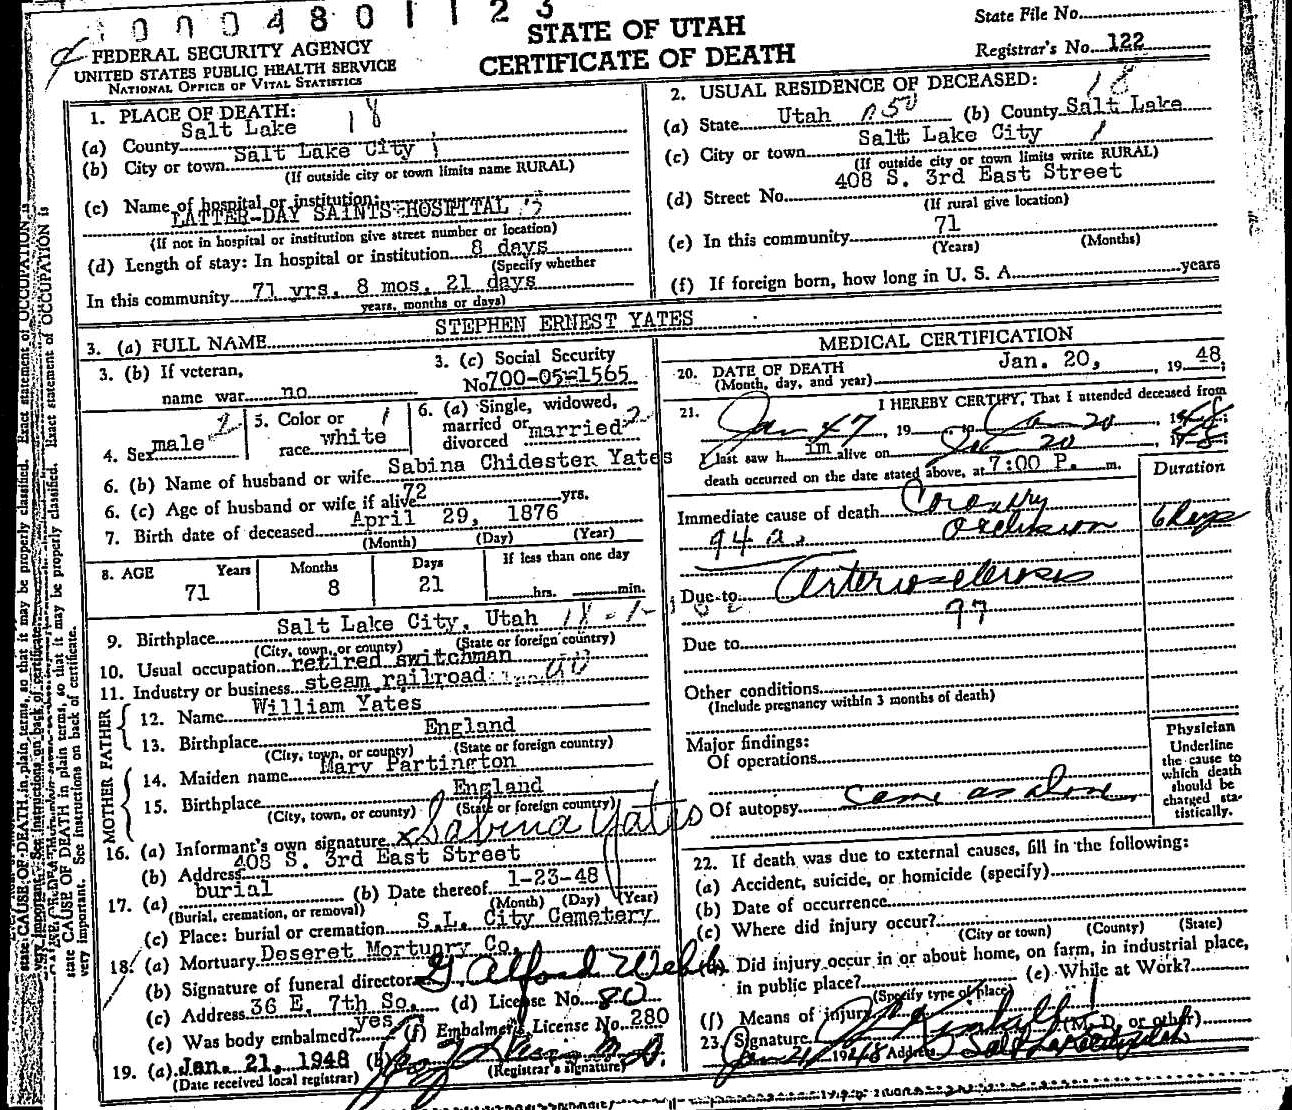 0004801123
STATE OF UTAH
CERTIFICATE OF DEATH
State File No.
Registrar's No. 122
FEDERAL SECURITY AGENCY
UNITED STATES PUBLIC HEALTH SERVICE
NATIONAL OFFICE OF VITAL STATISTICS
1. PLACE OF DEATH: 18
(a) County Salt Lake
(b) City or town Salt Lake City 1
(If outside city or town limits name RURAL)
(c) Name of hospital or institution:
LATTER-DAY SAINTS HOSPITAL
(If not in hospital or institution give street number or location)
(d) Length of stay: In hospital or institution 8 days
(Specify whether
In this community 71 yrs. 8 mos. 21 days
years, months or days)
2. USUAL RESIDENCE OF DECEASED: 18
(a) State Utah (b) County Salt Lake
(c) City or town Salt Lake City 1
(If outside city or town limits write RURAL)
(d) Street No. 408 S. 3rd East Street
(If rural give location)
(e) In this community 71
(Years) (Months)
(f) If foreign born, how long in U. S. A. years
3. (a) FULL NAME STEPHEN ERNEST YATES
3. (b) If veteran,
name war no
3. (c) Social Security
No 700-05-1565
4. Sex male 2
5. Color or 1
race white
6. (a) Single, widowed,
married or
divorced married 2
6. (b) Name of husband or wife Sabina Chidester Yates
6. (c) Age of husband or wife if alive 72 yrs.
7. Birth date of deceased April 29, 1876
(Month) (Day) (Year)
8. AGE Years Months Days If less than one day
71 8 21 hrs. min.
9. Birthplace Salt Lake City, Utah
(City, town, or county) (State or foreign country)
10. Usual occupation retired switchman
11. Industry or business steam railroad
FATHER
12. Name William Yates
13. Birthplace England
(City, town, or county) (State or foreign country)
MOTHER
14. Maiden name Mary Partington
15. Birthplace England
(City, town, or county) (State or foreign country)
16. (a) Informant's own signature x Sabina Yates
(b) Address 408 S. 3rd East Street
17. (a) burial (b) Date thereof 1-23-48
(Burial, cremation, or removal) (Month) (Day) (Year)
(c) Place: burial or cremation S.L. City Cemetery
18. (a) Mortuary Deseret Mortuary Co.
(b) Signature of funeral director G Alford Webb
(c) Address 36 E. 7th So. (d) License No. 80
(e) Was body embalmed? yes (f) Embalmer's License No. 280
19. (a) Jan. 21, 1948 (b)
(Date received local registrar) (Registrar's signature)
MEDICAL CERTIFICATION
20. DATE OF DEATH Jan. 20, 19 48;
(Month, day, and year)
21. I HEREBY CERTIFY, That I attended deceased from
Jan 47, 19 to Jan 20 1948
I last saw h im alive on Jan 20, 1948
death occurred on the date stated above, at 7:00 P. m.
Duration
Immediate cause of death Coronary
94 a. Occlusion 6 days
Due to Arteriosclerosis
97
Due to
Other conditions
(Include pregnancy within 3 months of death)
Major findings:
Of operations
Of autopsy same as above
Physician
Underline
the cause to
which death
should be
charged sta-
tistically.
22. If death was due to external causes, fill in the following:
(a) Accident, suicide, or homicide (specify)
(b) Date of occurrence
(c) Where did injury occur?
(City or town) (County) (State)
Did injury occur in or about home, on farm, in industrial place,
in public place? (e) While at Work?
(Specify type of place)
(f) Means of injury
23. Signature (M. D. or other)
Jan 21 1948 Address Salt Lake City Utah
state CAUSE OF DEATH in plain terms, so that it may be properly classified. Exact statement of OCCUPATION is
very important. See instructions on back of certificate.